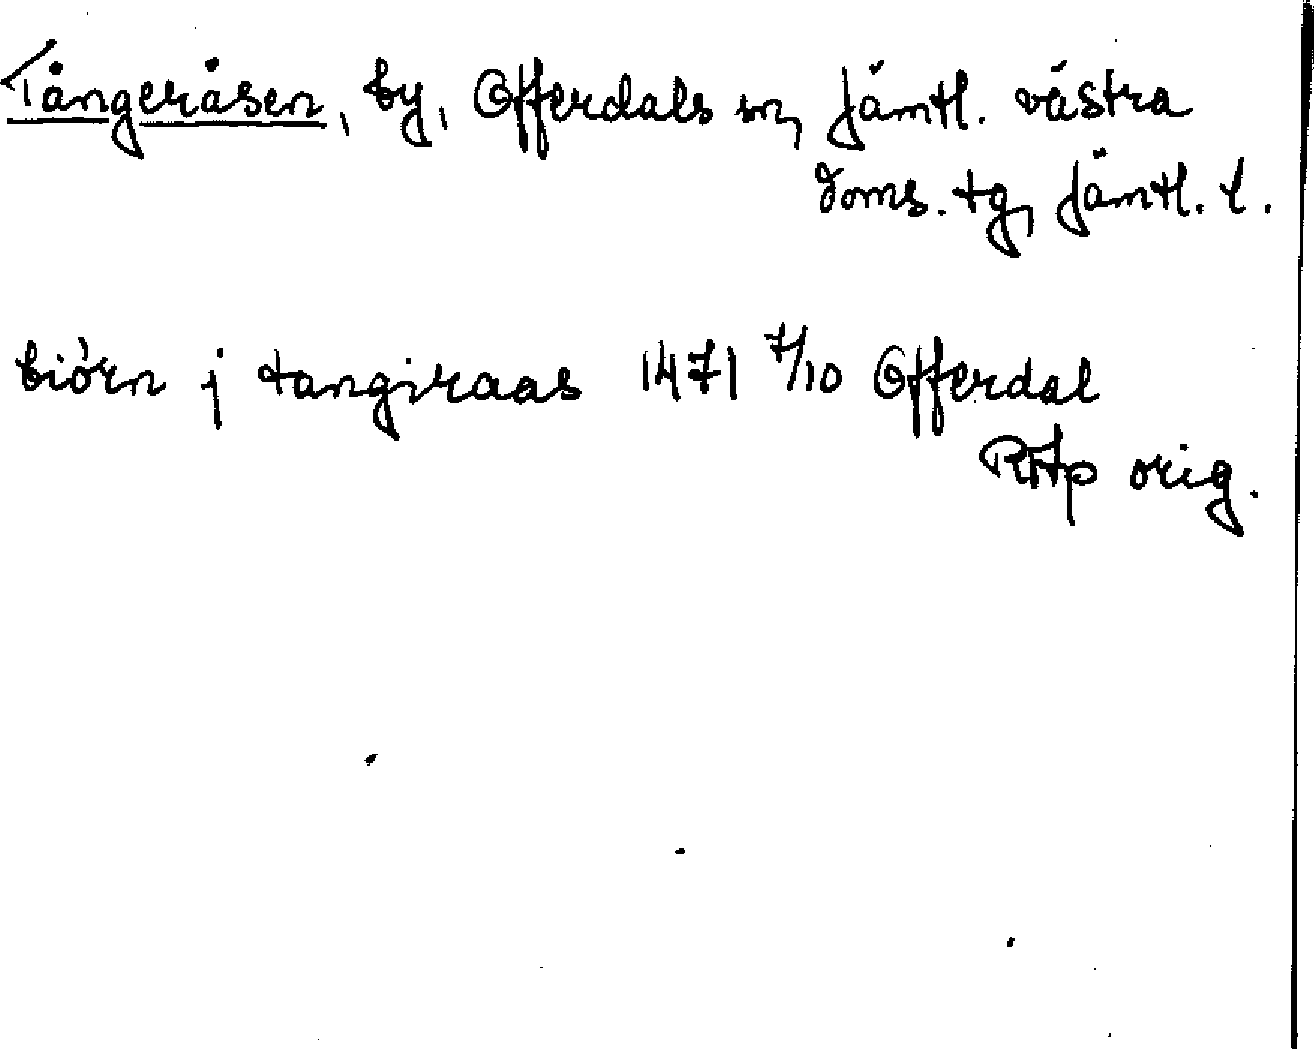 Tångeråsen, by, Offerdals sn, Jämtl. västra
doms. tg, Jämtl. l.
biörn j tangiraas 1471 7/10 Offerdal
RAp orig.